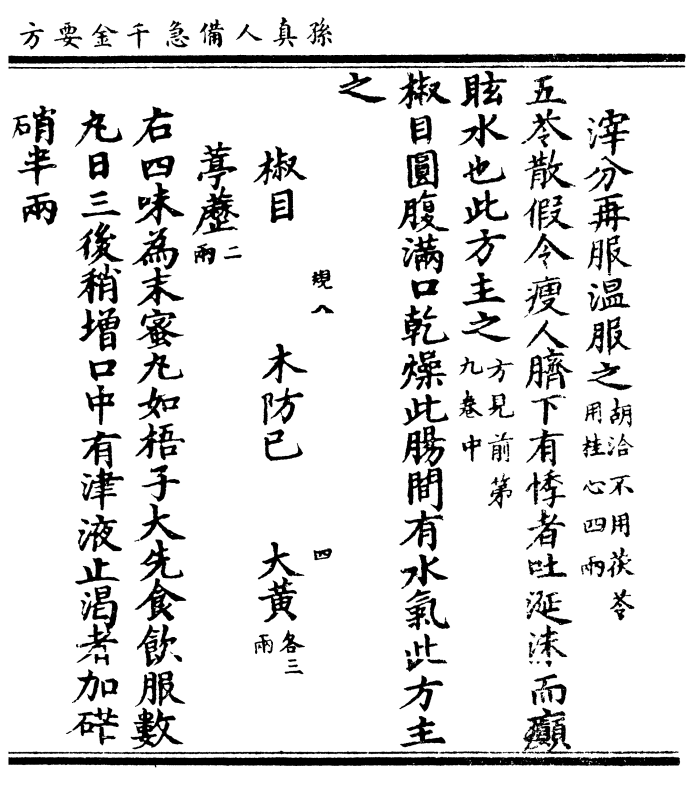 孫真人備急千金要方
滓分再服温服之胡洽不用茯苓用桂心四兩
五苓散假令瘦人臍下有悸者吐涎沫而癲
眩水也此方主之方見前第九卷中
椒目圓腹滿口乾燥此腸間有水氣此方主
之
規八 四
椒目 木防已 大黃各三兩
葶藶二兩
右四味為末蜜丸如梧子大先食飲服數
丸日三後稍增口中有津液止渴者加
硝半兩